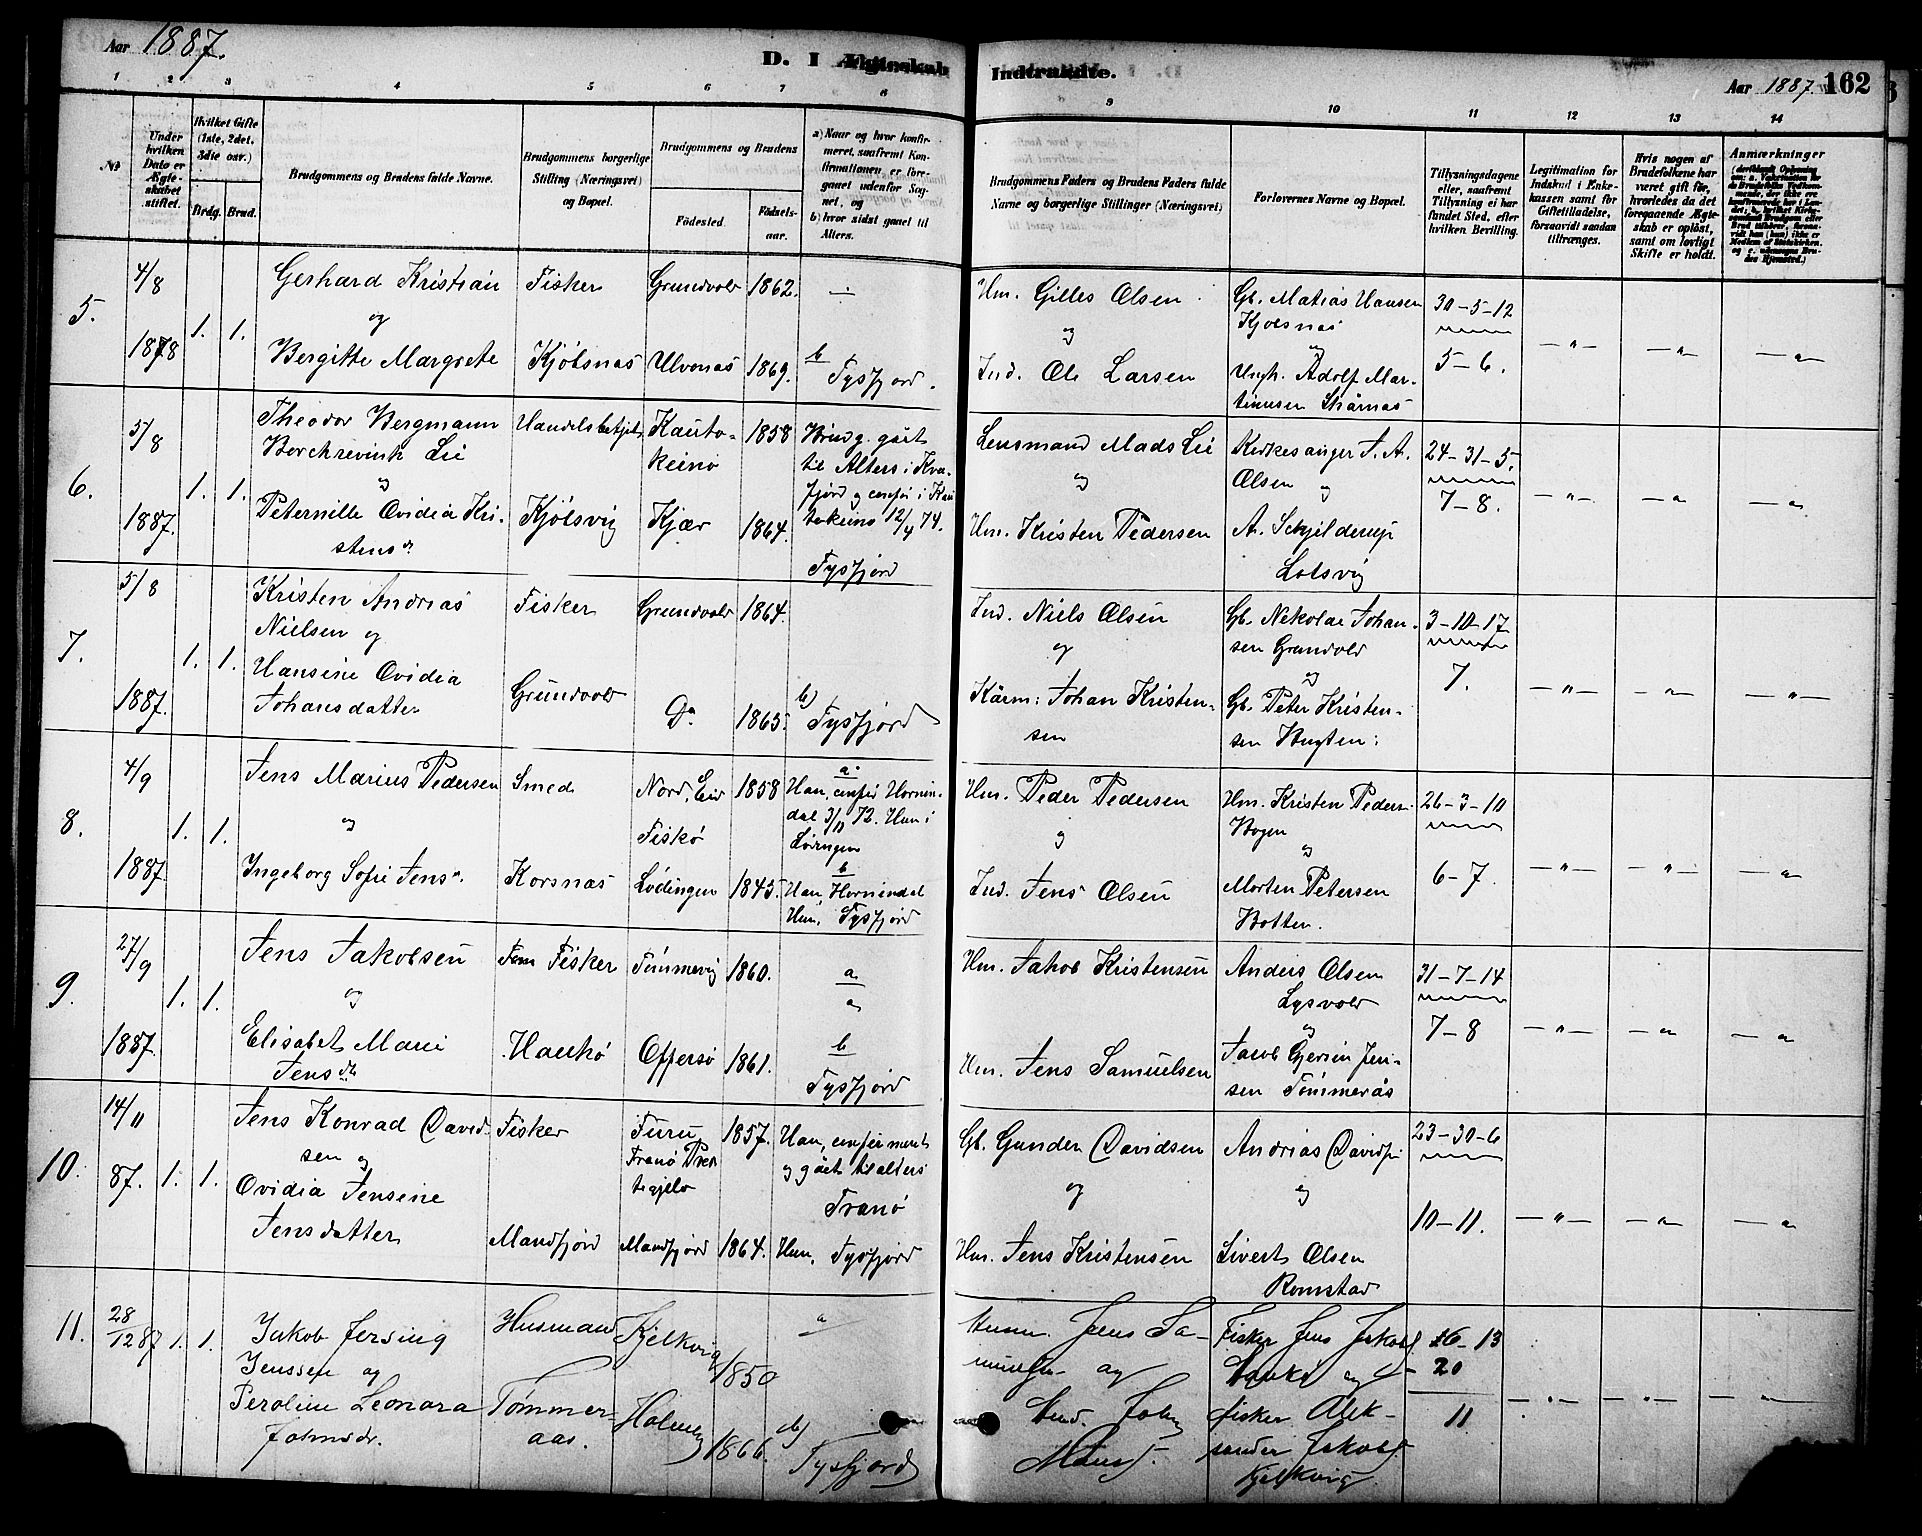 Aar 1887.
D. I Ægteskab
Indtraadte.
Aar 1887. 162
1 2 3 4 5 6 7 8
9 10 11 12 13 14
No
Under hvilken Dato er Ægteskabet stiftet.
Hvilket Gifte (1ste, 2det, 3die osv.)
Brdg. Brud.
Brudgommens og Brudens fulde Navne.
Brudgommens borgerlige Stilling (Næringsvei) og Bopæl.
Brudgommens og Brudens
Fødested.
Fødsels-aar.
a) Naar og hvor konfirmeret, saafremt Konfirmationen er foregaaet udenfor Sognet, og
b) hvor sidst gaaet til Alters.
Brudgommens Faders og Brudens Faders fulde Navne og borgerlige Stillinger (Næringsvei)
Forlovernes Navne og Bopæl.
Tillysningsdagene eller, saafremt Tillysning ei har fundet Sted, efter hvilken Bevilling.
Legitimation for Indskud i Enkekassen samt for Giftetilladelse, forsaavidt saadan tiltrænges.
Hvis nogen af Brudefolkene har været gift før, hvorledes da det foregaaende Ægteskab er opløst, samt om lovligt Skifte er holdt.
Anmærkninger
5.
4/8
1878
1. 1.
Gerhard Kristian
og
Bergitte Margrete
Fisker
Kjøbsnas
Grundvold
Ulvonas
1862.
1869.
b
Tysfjord.
Hm. Gilles Olsen
og
Ind. Ole Larsen
Gb. Matias Hansen
Kjøbsnas
og
Ungk. Adolf Mar-
tinusen Skårnas
30-5-12
5-6.
6.
5/8
1887.
1. 1.
Theodor Bergmann
Borchrevink Lie
og
Peternille Ovidia Kri-
stensdr
Handelsbetjent
Kjøbsvig
Kauto-
keino
Kjær
1858
1864.
Brudg. gåët
til Alters i Kva-
fjord
tokeino 12/4 74.
Tysfjord
Lensmand Mads Lie
og
Hm. Kristen Pedersen
Kirkesanger J. A.
Olsen og
A. Schjelderup
Lotsvig
24-31-5.
7-8.
7.
5/8
1887.
1. 1.
Kristen Andrias
Nielsen og
Hansine Ovidia
Johansdatter
Fisker
Grundvold
Grundvold
Do
1864.
1865.
b)
Tysfjord
Ind. Niels Olsen
og
Kårm: Johan Kristen-
sen
Gb. Nekolai Johan-
sen Grundvold
og
Gb. Peter Kristen-
sen Bugten:
3-10-17
7.
8.
4/9
1887
1. 1.
Jens Marius Pedersen
og
Ingeborg Sofie Jensd.
Smed
Korsnas
Nord. Eid
Fiskø
Lødingen
1858
1845.
a.
Han, confir Hornin-
dal 3/11 72. Hun i
Lødingen
b
Han, Hornindal
Hun, Tysfjord
Hm. Peder Pedersen
og
Ind. Jens Olsen
Hm. Kristen Peders.
Bogen
og
Morten Petersen
Botten.
26-3-10
6-7.
9.
27/9
1887.
1. 1.
Jens Jakobsen
og
Elisabet Marie
Jensdtr
Fisker
Haukø
Tømmervig
Offersø
1860.
1861.
a
b
Tysfjord
Hm. Jakob Kristensen
Hm. Jens Samuelsen
Anders Olsen
Lysvold
og
Jacob Gjersin Jen-
sen Tømmerås
31-7-14
7-8
10.
14/11
87.
1. 1.
Jens Konrad David-
sen og
Ovidia Jensine
Jensdatter
Fisker
Mandfjord
Furu
Tranø Prest
tegjeld
Mandfjord
1857.
1864.
Han, confirmeret
og gået til alters
Tranø
Hun, Tysfjord
Gb. Gunder Davidsen
og
Hm. Jens Kristensen
Andrias Davids
og
Sivert Olsen
Romstad
23-30-6
10-11.
11.
28/12 87
1. 1.
Jakob Jersing
Jenssen og
Peroline Leonora
Johnsdr.
Husmand
Tømmer-
aas.
Kjelkvig
Holmen
1850
1866.
a
b)
Tysfjord
Husm. Jens Sa-
muelsen og
Ind. John
Fisker Jens Jakobs
Hauko og
fisker Alek-
sander Jakobs.
Kjelkvig
6-13
20
11